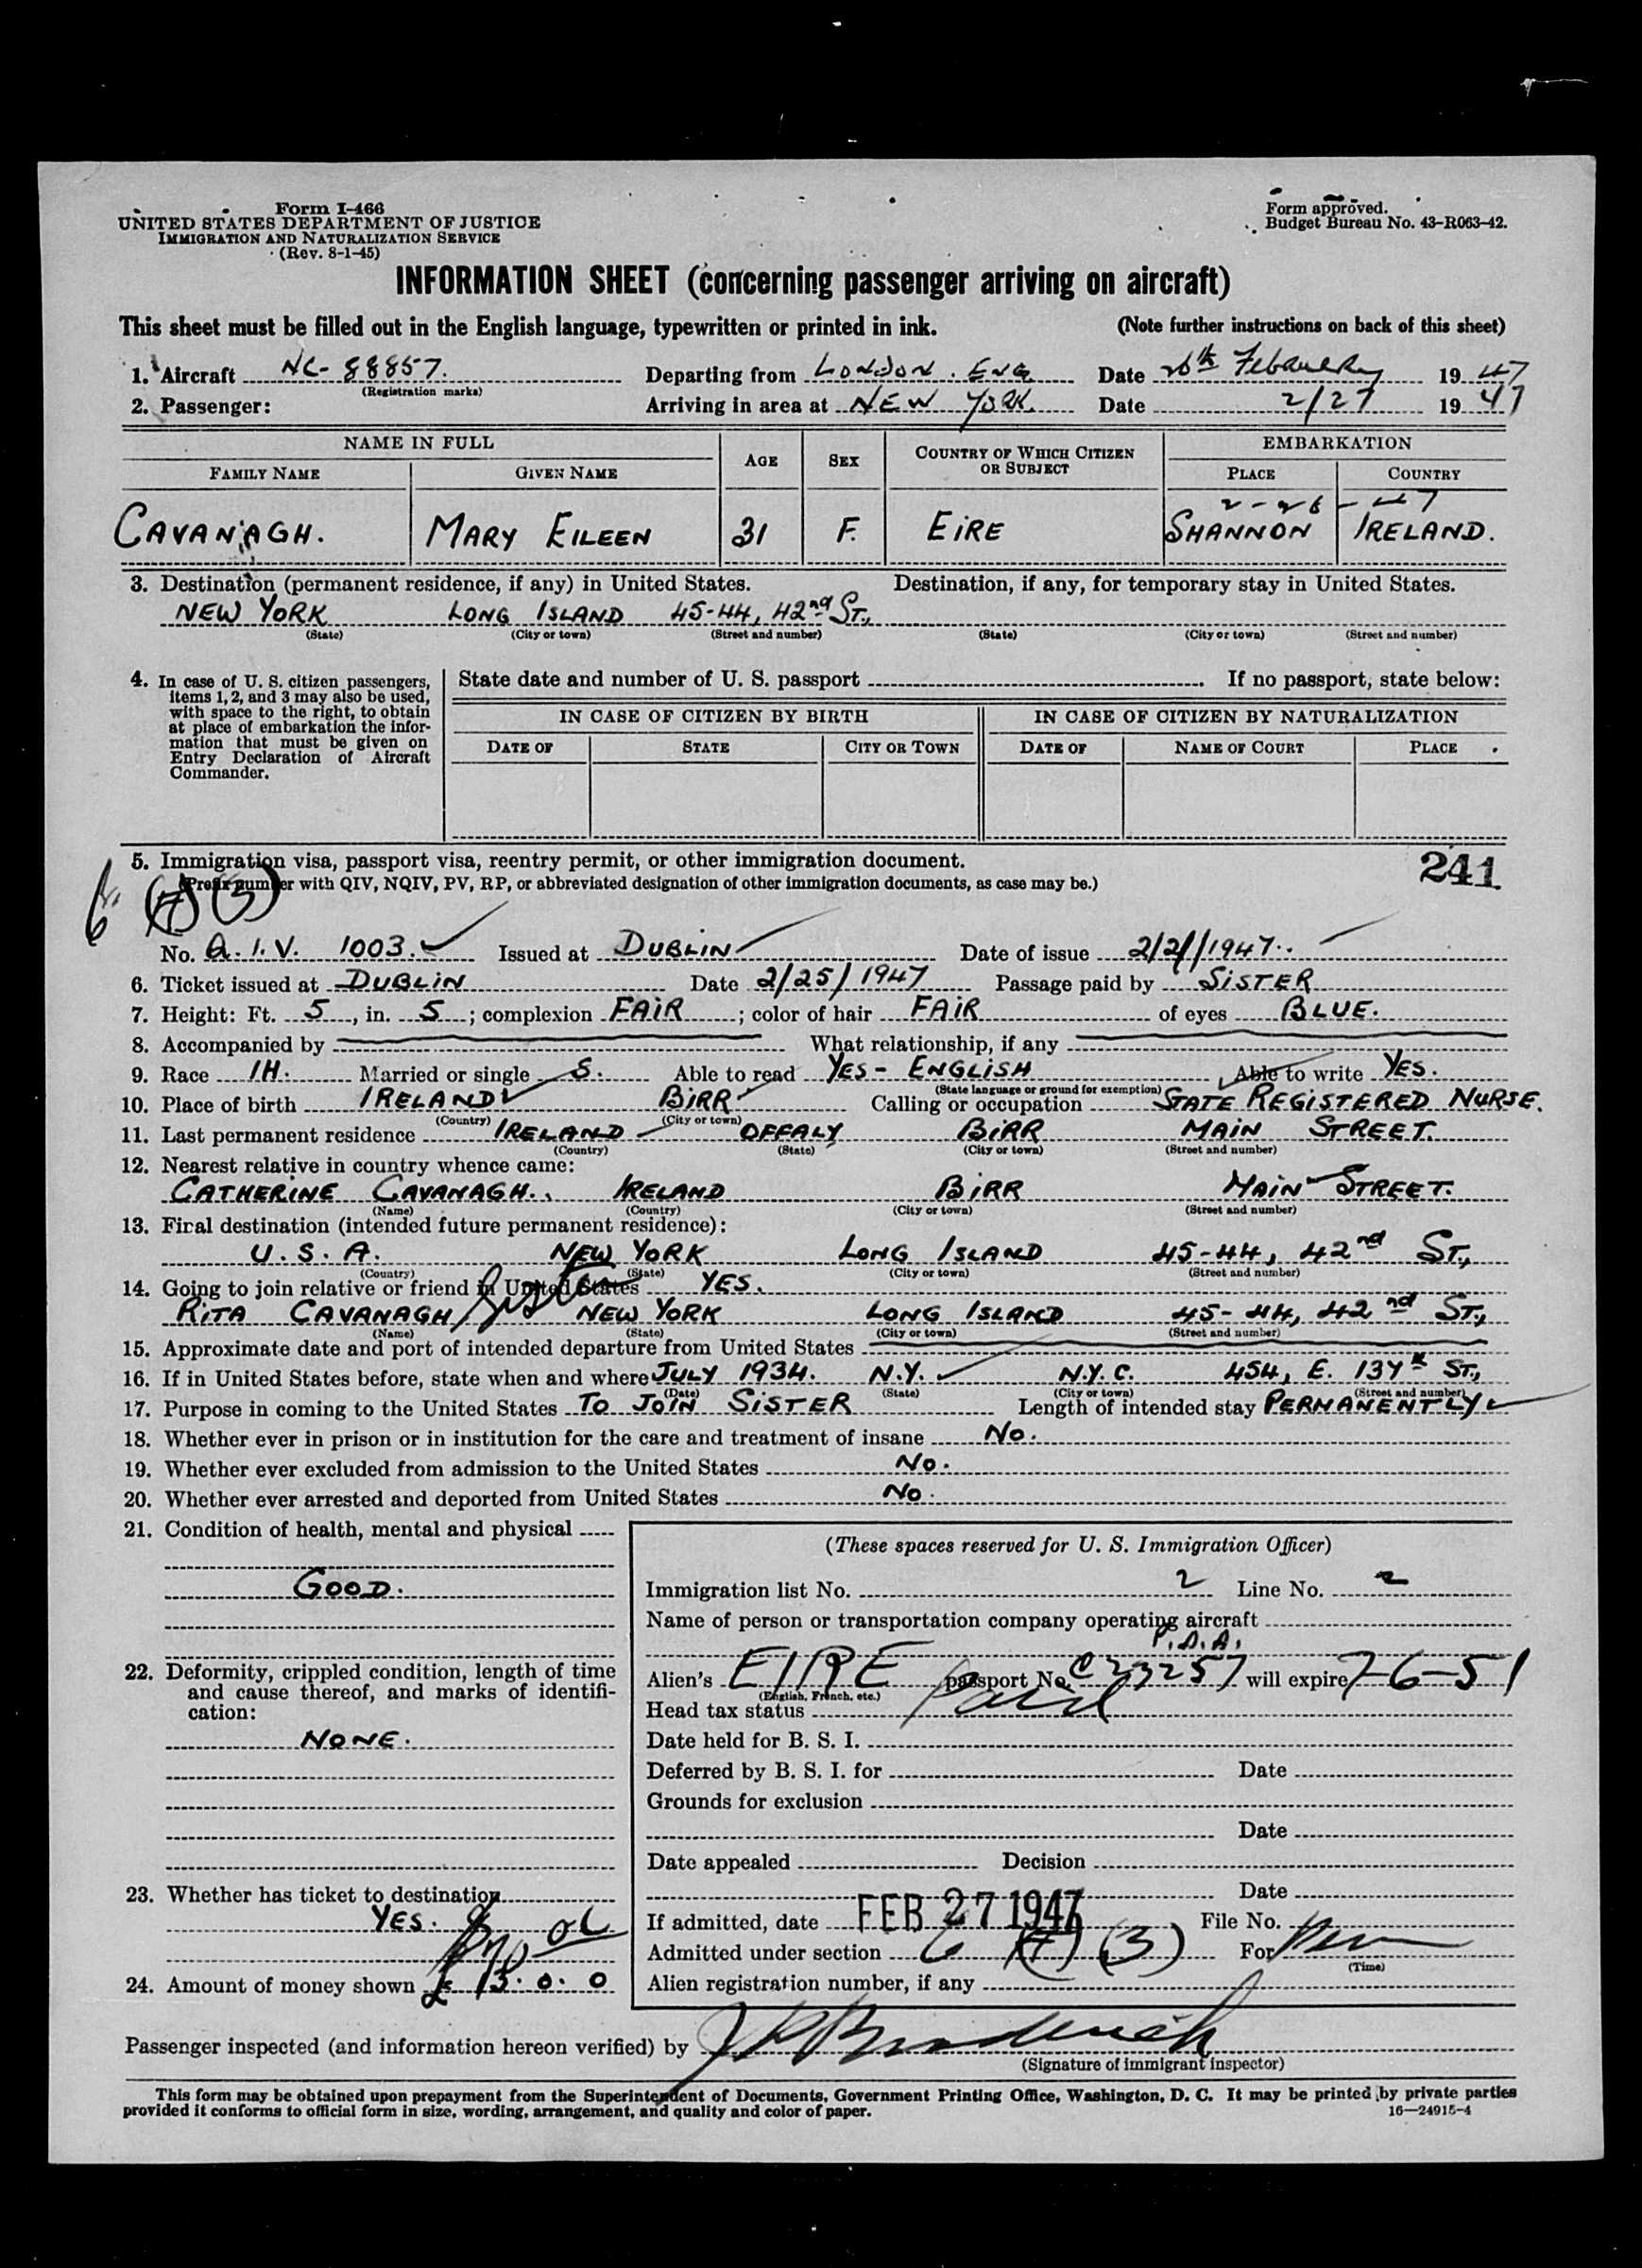 Form I-466
UNITED STATES DEPARTMENT OF JUSTICE
IMMIGRATION AND NATURALIZATION SERVICE
(Rev. 8-1-45)
Form approved.
Budget Bureau No. 43-R063-42.
INFORMATION SHEET (concerning passenger arriving on aircraft)
This sheet must be filled out in the English language, typewritten or printed in ink. (Note further instructions on back of this sheet)
1. Aircraft NC-88857. Departing from LONDON. ENG Date 26th February 1947
(Registration marks)
2. Passenger: Arriving in area at NEW YORK. Date 2/27 1947
NAME IN FULL AGE SEX COUNTRY OF WHICH CITIZEN OR SUBJECT EMBARKATION
FAMILY NAME GIVEN NAME PLACE COUNTRY
2-26-47
CAVANAGH. MARY EILEEN 31 F. EIRE SHANNON IRELAND.
3. Destination (permanent residence, if any) in United States. Destination, if any, for temporary stay in United States.
NEW YORK LONG ISLAND 45-44, 42nd ST.,
(State) (City or town) (Street and number) (State) (City or town) (Street and number)
4. In case of U. S. citizen passengers, items 1, 2, and 3 may also be used, with space to the right, to obtain at place of embarkation the information that must be given on Entry Declaration of Aircraft Commander.
State date and number of U. S. passport If no passport, state below:
IN CASE OF CITIZEN BY BIRTH IN CASE OF CITIZEN BY NATURALIZATION
DATE OF STATE CITY OR TOWN DATE OF NAME OF COURT PLACE
5. Immigration visa, passport visa, reentry permit, or other immigration document. 241
(Prefix number with QIV, NQIV, PV, RP, or abbreviated designation of other immigration documents, as case may be.)
6 (A) (3)
No. Q.I.V. 1003. Issued at DUBLIN Date of issue 2/21/1947.
6. Ticket issued at DUBLIN Date 2/25/1947 Passage paid by SISTER
7. Height: Ft. 5, in. 5; complexion FAIR; color of hair FAIR of eyes BLUE.
8. Accompanied by What relationship, if any
9. Race IH. Married or single S. Able to read YES - ENGLISH Able to write YES.
(State language or ground for exemption)
10. Place of birth IRELAND BIRR Calling or occupation STATE REGISTERED NURSE.
(Country) (City or town)
11. Last permanent residence IRELAND OFFALY BIRR MAIN STREET.
(Country) (State) (City or town) (Street and number)
12. Nearest relative in country whence came:
CATHERINE CAVANAGH. IRELAND BIRR MAIN STREET.
(Name) (Country) (City or town) (Street and number)
13. Final destination (intended future permanent residence):
U.S.A. NEW YORK LONG ISLAND 45-44, 42nd ST.,
(Country) (State) (City or town) (Street and number)
14. Going to join relative or friend in United States YES.
RITA CAVANAGH / Sister NEW YORK LONG ISLAND 45-44, 42nd ST.,
(Name) (State) (City or town) (Street and number)
15. Approximate date and port of intended departure from United States
16. If in United States before, state when and where JULY 1934. N.Y. N.Y.C. 454, E. 137th ST.,
(Date) (State) (City or town) (Street and number)
17. Purpose in coming to the United States TO JOIN SISTER Length of intended stay PERMANENTLY
18. Whether ever in prison or in institution for the care and treatment of insane NO.
19. Whether ever excluded from admission to the United States NO.
20. Whether ever arrested and deported from United States NO.
21. Condition of health, mental and physical
GOOD.
22. Deformity, crippled condition, length of time
and cause thereof, and marks of identifi-
cation:
NONE.
23. Whether has ticket to destination
YES.
24. Amount of money shown £ 13.0.0
(These spaces reserved for U. S. Immigration Officer)
Immigration list No. 2 Line No. 2
Name of person or transportation company operating aircraft
P.A.A.
Alien's EIRE passport No. C23257 will expire 7-6-51
(English, French, etc.)
Head tax status Paid
Date held for B. S. I.
Deferred by B. S. I. for Date
Grounds for exclusion
Date
Date appealed Decision
Date
If admitted, date FEB 27 1947 File No.
Admitted under section 6 (A) (3) For Perm
(Time)
Alien registration number, if any
Passenger inspected (and information hereon verified) by
(Signature of immigrant inspector)
This form may be obtained upon prepayment from the Superintendent of Documents, Government Printing Office, Washington, D. C. It may be printed by private parties
provided it conforms to official form in size, wording, arrangement, and quality and color of paper. 16—24915-4